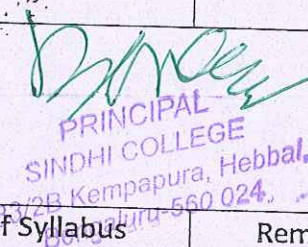 PRINCIPAL
SINDHI COLLEGE
3/2B Kempapura, Hebbal,
Bengaluru-560 024.
f Syllabus
Rem